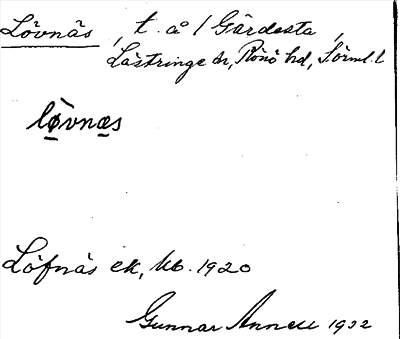 Lövnäs, t. å / Gärdesta,
Lästringe sn, Rönö hd, Sörml. l
lø̀vnæs
Löfnäs ek, kb. 1920
Gunnar Annell 1932